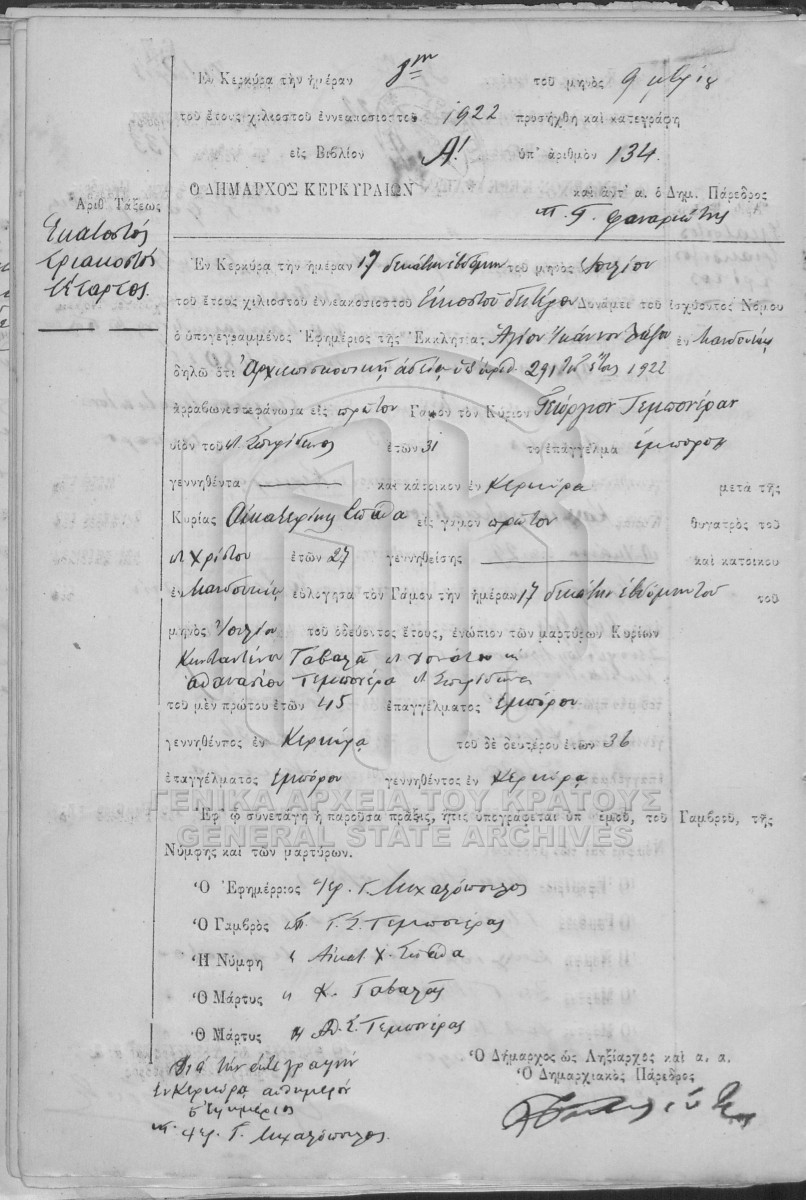 Ἐν Κερκύρᾳ τὴν ἡμέραν τοῦ μηνὸς
τοῦ ἔτους χιλιοστοῦ ἐννεακοσιοστοῦ 1922 προσήχθη καὶ κατεγράφη
εἰς Βιβλίον Α! ὑπ' ἀριθμὸν 134
Ο ΔΗΜΑΡΧΟΣ ΚΕΡΚΥΡΑΙΩΝ καὶ ἀντ' α. ὁ Δημ. Πάρεδρος
Ἀριθ. Τάξεως
Ἑκατοστός
τριακοστός
τέταρτος.
Ἐν Κερκύρᾳ τὴν ἡμέραν 17 δεκάτην ἑβδόμην τοῦ μηνὸς Ἰουλίου
τοῦ ἔτους χιλιοστοῦ ἐννεακοσιοστοῦ εἰκοστοῦ δευτέρου Δυνάμει τοῦ ἰσχύοντος Νόμου
ὁ ὑπογεγραμμένος Ἐφημέριος τῆς Ἐκκλησίας Ἁγίου Ἰωάννου ἐν Μανδουκίῳ
δηλῶ ὅτι Ἀρχιεπισκοπικῇ ἀδείᾳ ὑπ' ἀριθ. 291 τοῦ ἔτους 1922
ἀρραβωνεστεφάνωσα εἰς πρῶτον Γάμον τὸν Κύριον Γεώργιον Τεμπονέραν
υἱὸν τοῦ Σπυρίδωνος ἐτῶν 31 τὸ ἐπάγγελμα ἔμπορον
γεννηθέντα καὶ κάτοικον ἐν Κερκύρᾳ μετὰ τῆς
Κυρίας Αἰκατερίνης εἰς γάμον πρῶτον θυγατρὸς τοῦ
Χρίστου ἐτῶν 27 γεννηθείσης καὶ κατοίκου
ἐν Μανδουκίῳ εὐλόγησα τὸν Γάμον τὴν ἡμέραν 17 δεκάτην ἑβδόμην τοῦ τοῦ
μηνὸς Ἰουλίου τοῦ ὁδεύοντος ἔτους, ἐνώπιον τῶν μαρτύρων Κυρίων
Κωνσταντίνου Γαβαλᾶ
Ἀθανασίου Τεμπονέρα Σπυρίδωνος
τοῦ μὲν πρώτου ἐτῶν 45 ἐπαγγέλματος ἐμπόρου
γεννηθέντος ἐν Κερκύρᾳ τοῦ δὲ δευτέρου ἐτῶν 36
ἐπαγγέλματος ἐμπόρου γεννηθέντος ἐν Κερκύρᾳ
ΓΕΝΙΚΑ ΑΡΧΕΙΑ ΤΟΥ ΚΡΑΤΟΥΣ
Ἐφ' ᾧ συνετάγη ἡ παροῦσα πρᾶξις, ἥτις ὑπογράφεται ὑπ' ἐμοῦ, τοῦ Γαμβροῦ, τῆς
GENERAL STATE ARCHIVES
Νύμφης καὶ τῶν μαρτύρων.
Ὁ Ἐφημέρριος Γ. Μιχαλόπουλος
Ὁ Γαμβρὸς Γ. Σ. Τεμπονέρας
Ἡ Νύμφη Αἰκατ. Χ.
Ὁ Μάρτυς Κ. Γαβαλᾶς
Ὁ Μάρτυς Ἀθ. Σ. Τεμπονέρας
Διὰ τὴν ἀντιγραφήν
ἐν Κερκύρᾳ αὐθημερόν
ὁ Ἐφημέριος
Γ. Μιχαλόπουλος.
Ὁ Δήμαρχος ὡς Ληξίαρχος καὶ α. α.
Ὁ Δημαρχιακὸς Πάρεδρος